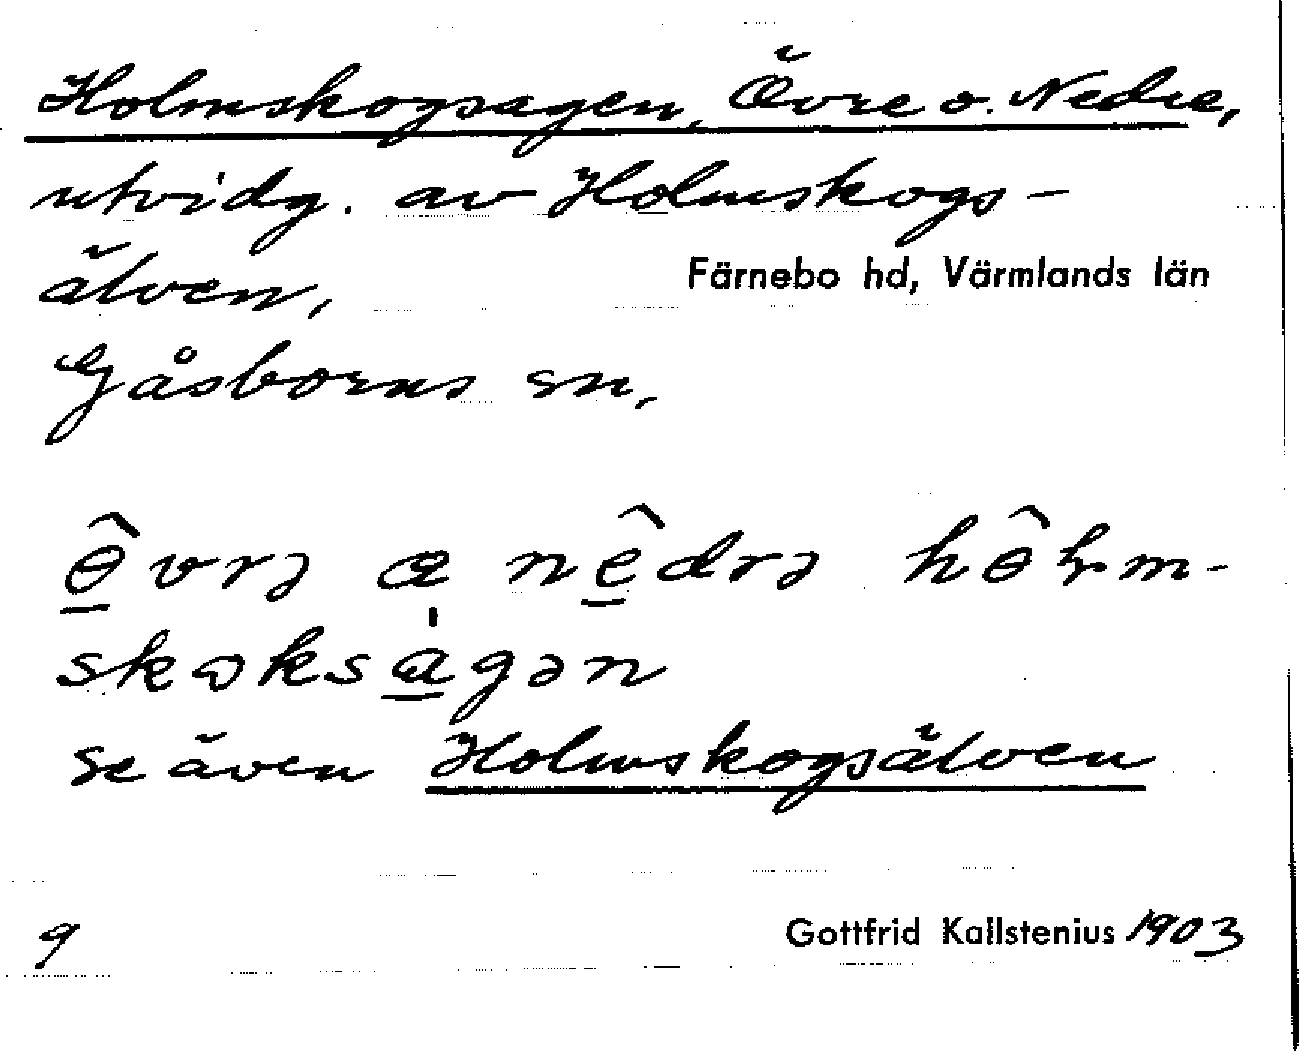 Holmskogsagen, Övre o. Nedre,
utvidg. av Holmskogs-
älven,
Färnebo hd, Värmlands län
Gåsborns sn,
se även Holmskogsälven
9
Gottfrid Kallstenius 1903